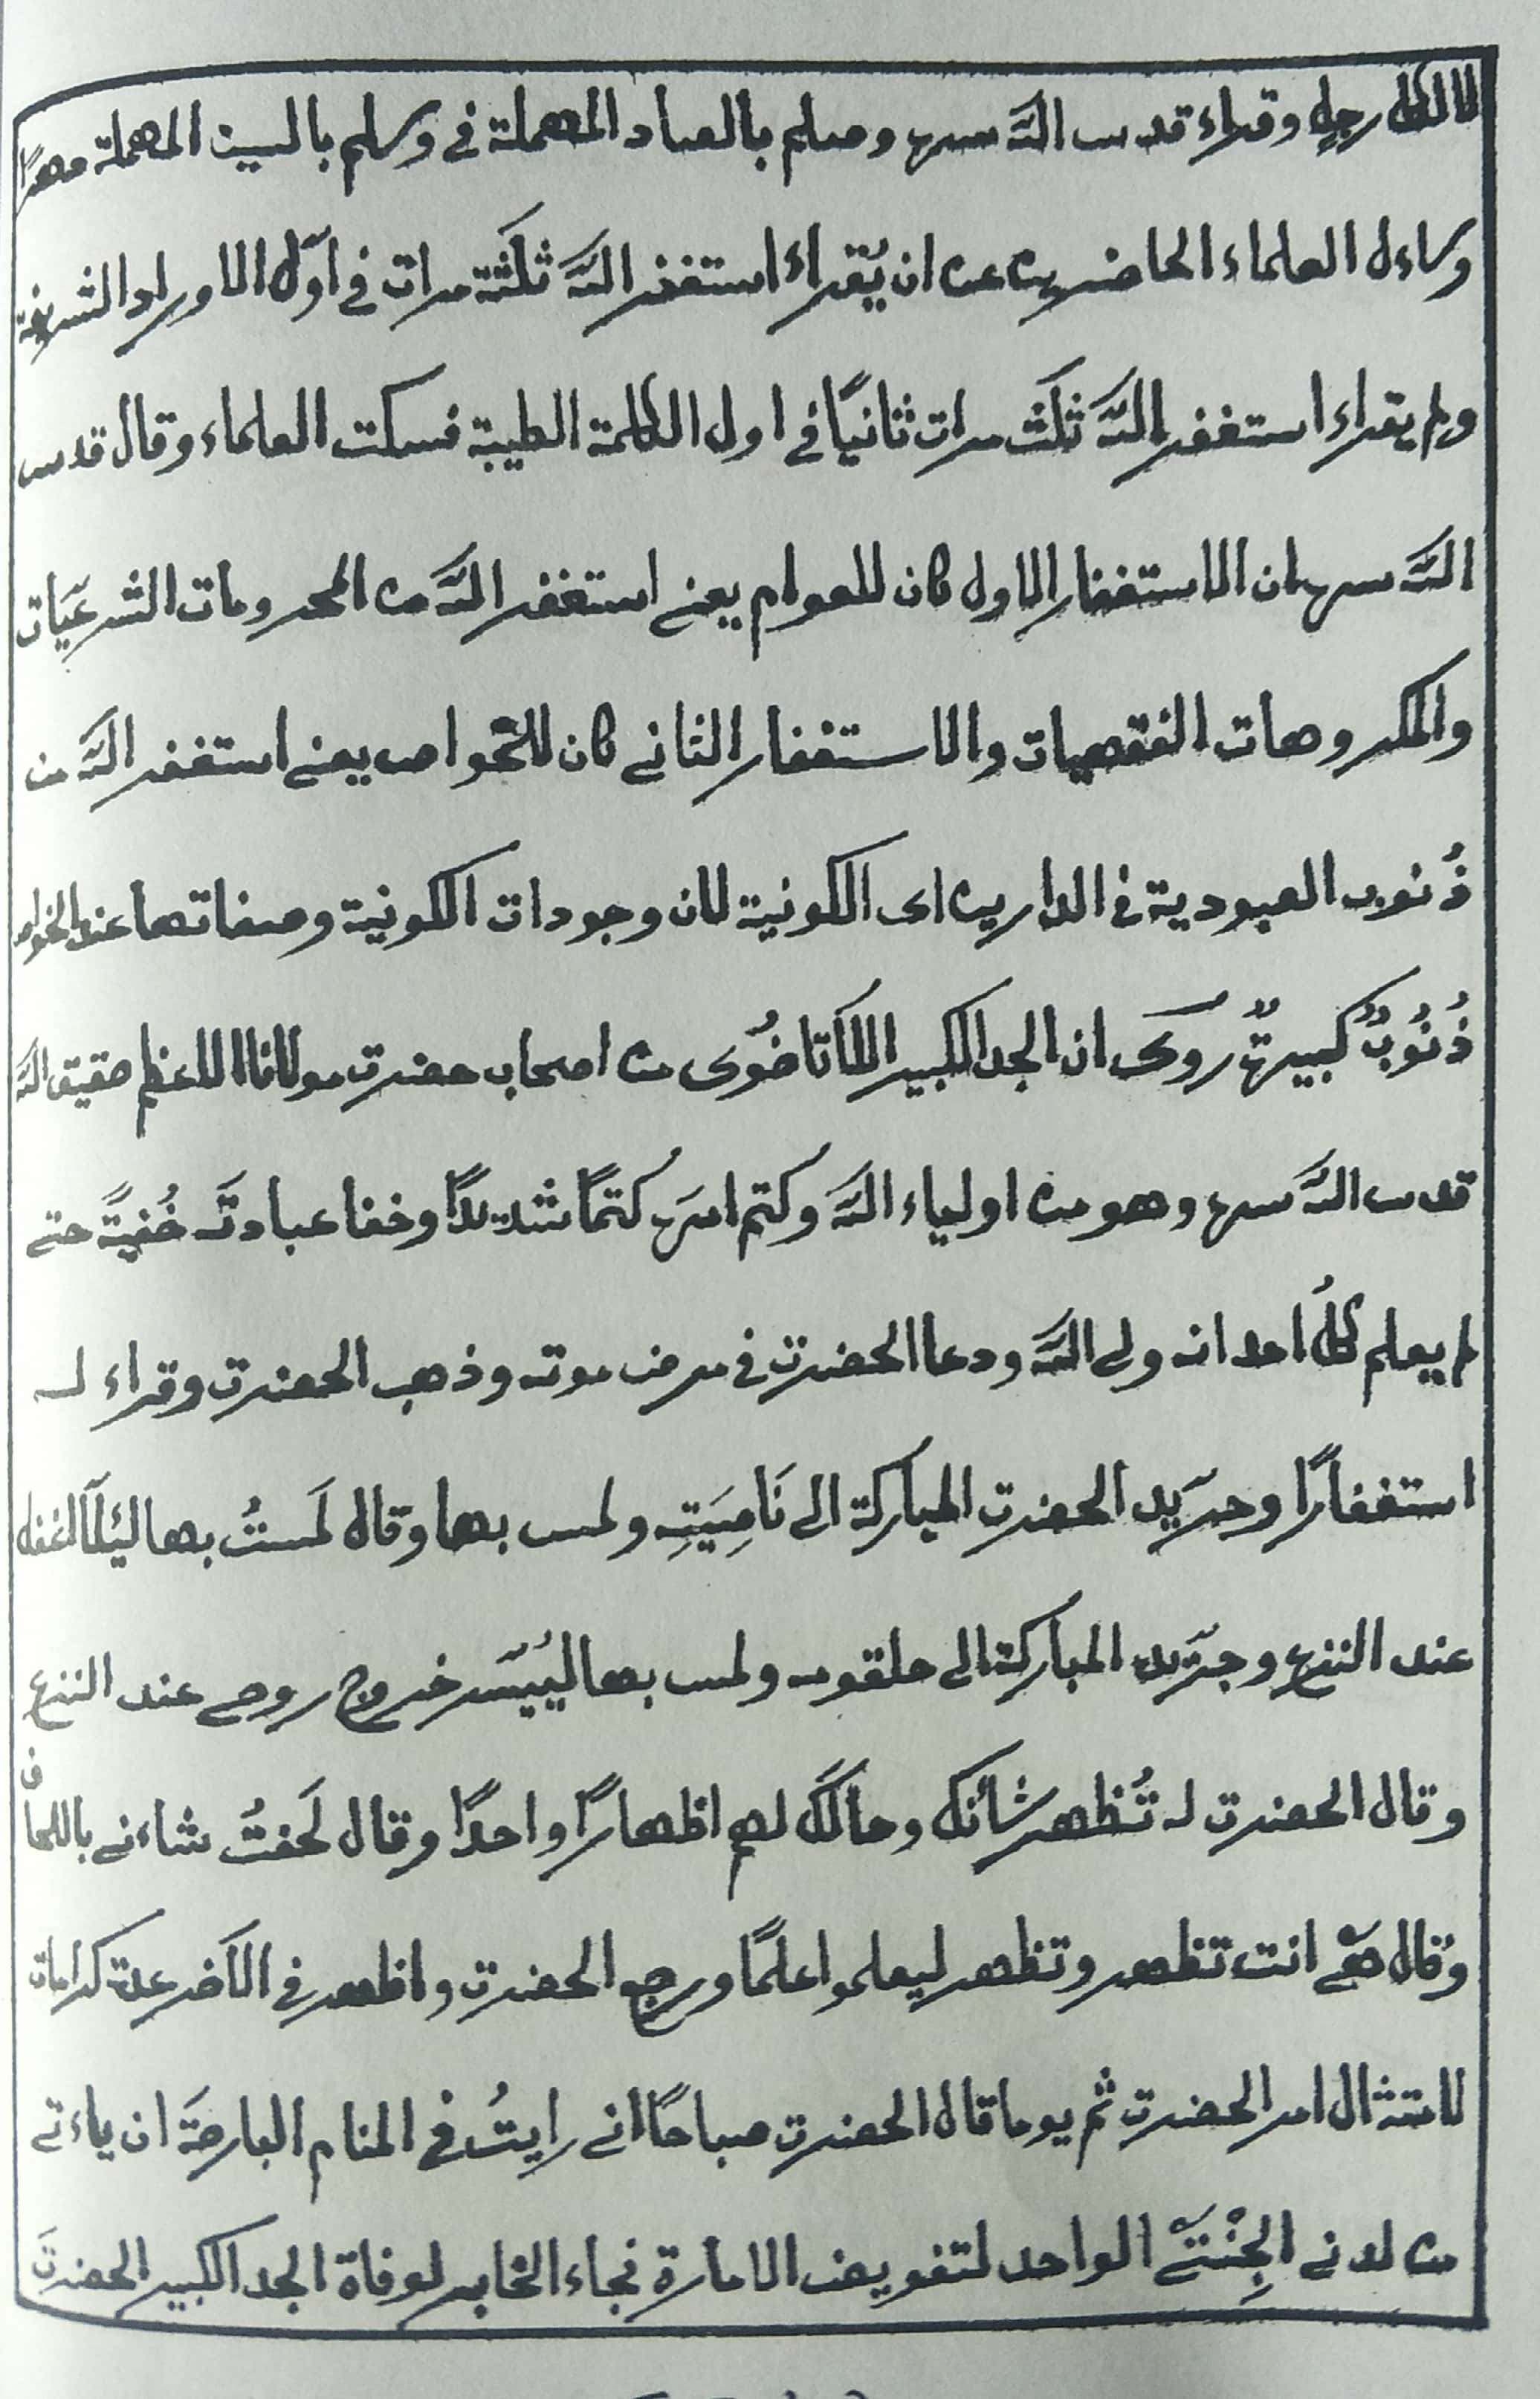 رجل وقراء قدس الله سره وصلم بالصاد المهملة في وسلم بالسين المهملة
وساءل العلماء الحاضرين عن ان يُقراء استغفر الله ثلثة مرات في اوّل الاوراد الشريفة
ولم يقراء استغفر الله ثلث مرات ثانيًا في اول الكلمة الطيبة فسكت العلماء وقال قدس
الله سره ان الاستغفار الاول كان للعوام يعني استغفر الله من المحرومات الشرعيّات
والمكروهات الفقهيات والاستغفار الثاني كان للخواص يعني استغفر الله من
ذُنوب العبودية في الدارين اى الكونية لان وجودات الكونية وصفاتها عند الخواص
ذُنُوبٌ كبيرةٌ روى ان الجد الكبير من اصحاب حضرت مولانا الاعظم حقيق الله
قدس الله سره وهو من اولياء الله وكتم امره كتمًا شديدًا وخفا عبادته خُفيةً حتى
لم يعلم كلُّ احد انه ولي الله ودعا الحضرت في مرض موته وذهب الحضرت وقراء له
استغفارًا وجرّ يد الحضرت المباركة الى نَاصِيَتِهِ ولمس بها وقال لَمستُ بها ليئلّا اغفل
عند النزع وجرّ يده المباركة الى حلقومه ولمس بها ليُيسّر خروج روحي عند النزع
وقال الحضرت له تُظهر شائنك وحالك لهم اظهارًا واحدًا وقال لَحفتُ شاءني باللحاف
وقال انت تظهر وتظهر ليعلموا علمًا ورجع الحضرت واظهر في الآخر عدة كرامات
لامتثال امر الحضرت ثم يوما قال الحضرت صباحًا اني رايتُ في المنام البارحةَ ان ياءتي
من لدني الواحد لتفويض الامارة فجاء الخابر لوفاة الجد الكبير الحضرتَ